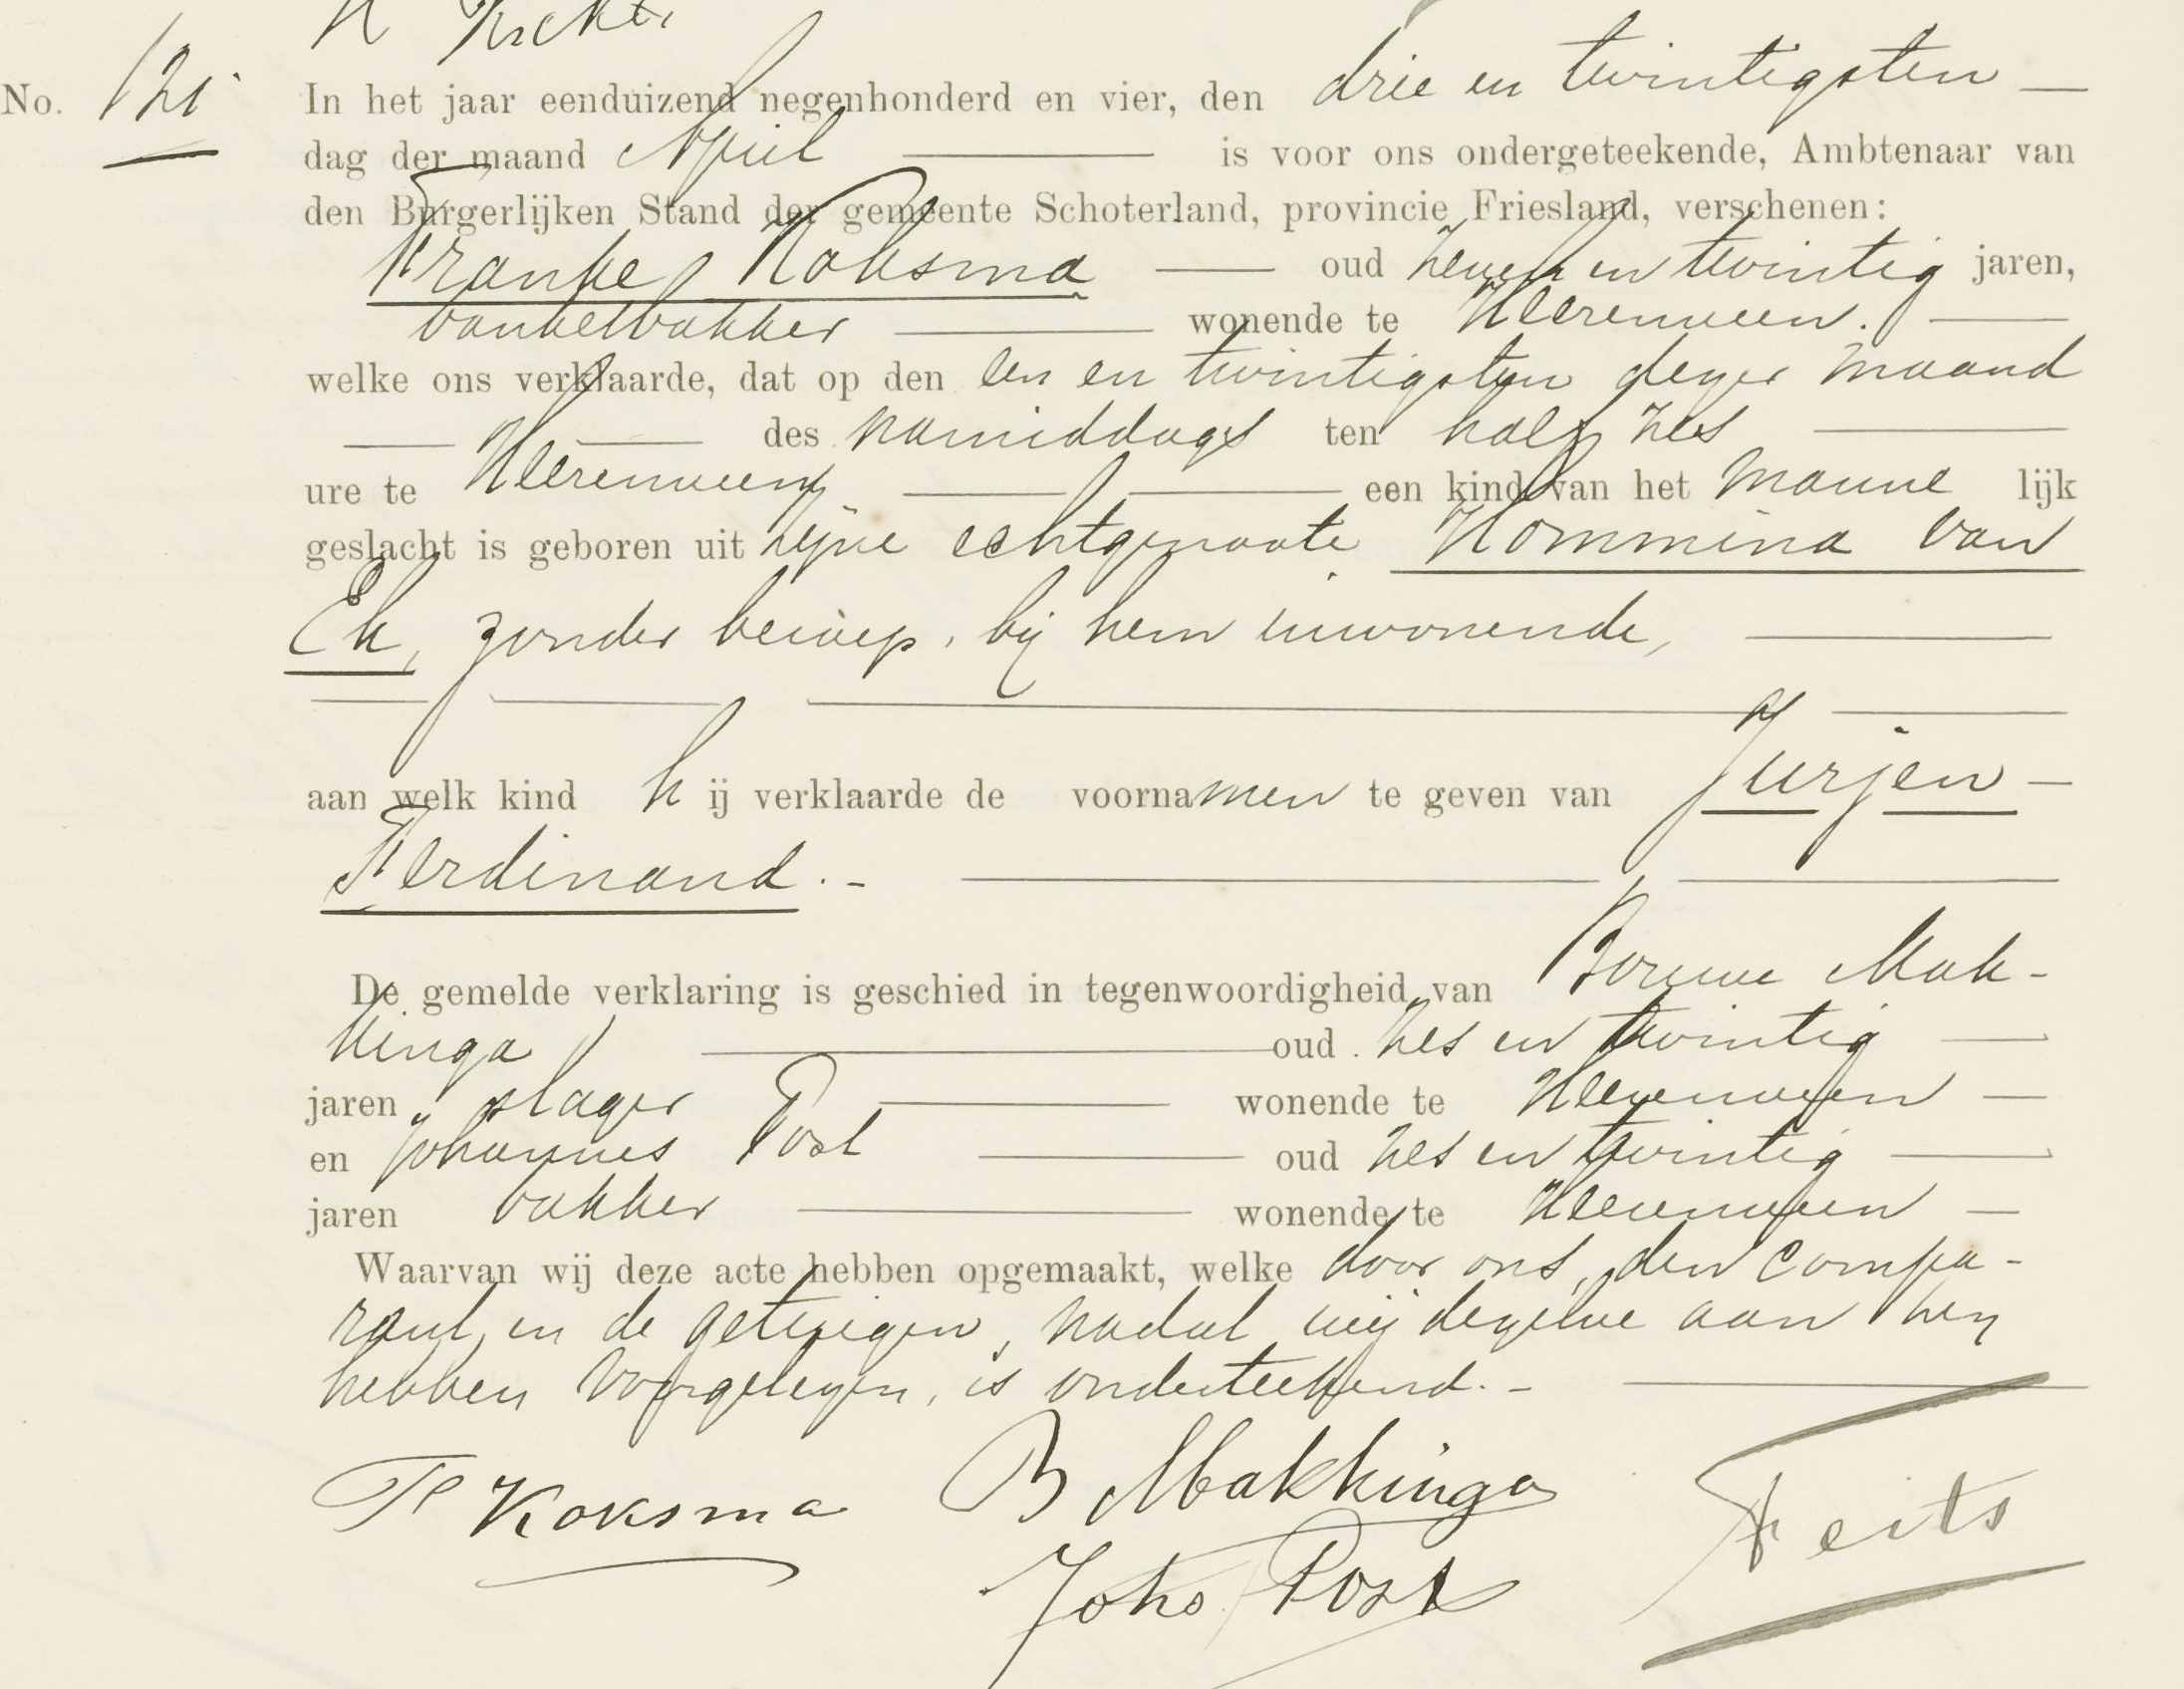 No. 121 In het jaar eenduizend negenhonderd en vier, den drie en twintigsten
dag der maand April is voor ons ondergeteekende, Ambtenaar van
den Burgerlijken Stand der gemeente Schoterland, provincie Friesland, verschenen:
Franke Koksma oud zeven en twintig jaren,
banketbakker wonende te Heerenveen.
welke ons verklaarde, dat op den een en twintigsten dezer maand
des namiddags ten half zes
ure te Heerenveen een kind van het manne lijk
geslacht is geboren uit zijne echtgenoote Hommina van
Ek, zonder beroep, bij hem inwonende,
aan welk kind h ij verklaarde de voorna men te geven van Jurjen
Ferdinand.-
De gemelde verklaring is geschied in tegenwoordigheid van Bouwe Mak-
kinga oud zes en twintig
jaren slager wonende te Heerenveen
en Johannes Post oud zes en twintig
jaren bakker wonende te Heerenveen
Waarvan wij deze acte hebben opgemaakt, welke door ons, den compa-
rant, en de getuigen, nadat wij dezelve aan hen
hebben voorgelezen, is onderteekend.-
F Koksma B Makkinga
Johs Post Feits